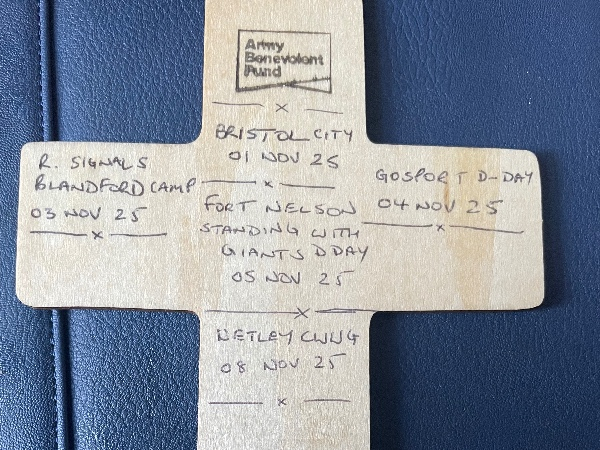 Army
Benevolent
Fund
x
BRISTOL CITY
01 NOV 25
x
R. SIGNALS
BLANDFORD CAMP
03 NOV 25
x
FORT NELSON
STANDING WITH
GIANTS DDAY
05 NOV 25
x
GOSPORT D-DAY
04 NOV 25
x
NETLEY CWWG
08 NOV 25
x